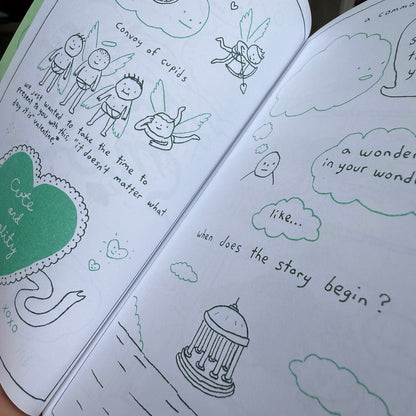 Convoy of Cupids
we just wanted to take the time to
present to you with this, it doesn't matter what
day it is "valentine"
Cute
and
xoxo
a commo
a wonder
in your wond
like...
when does the story begin?